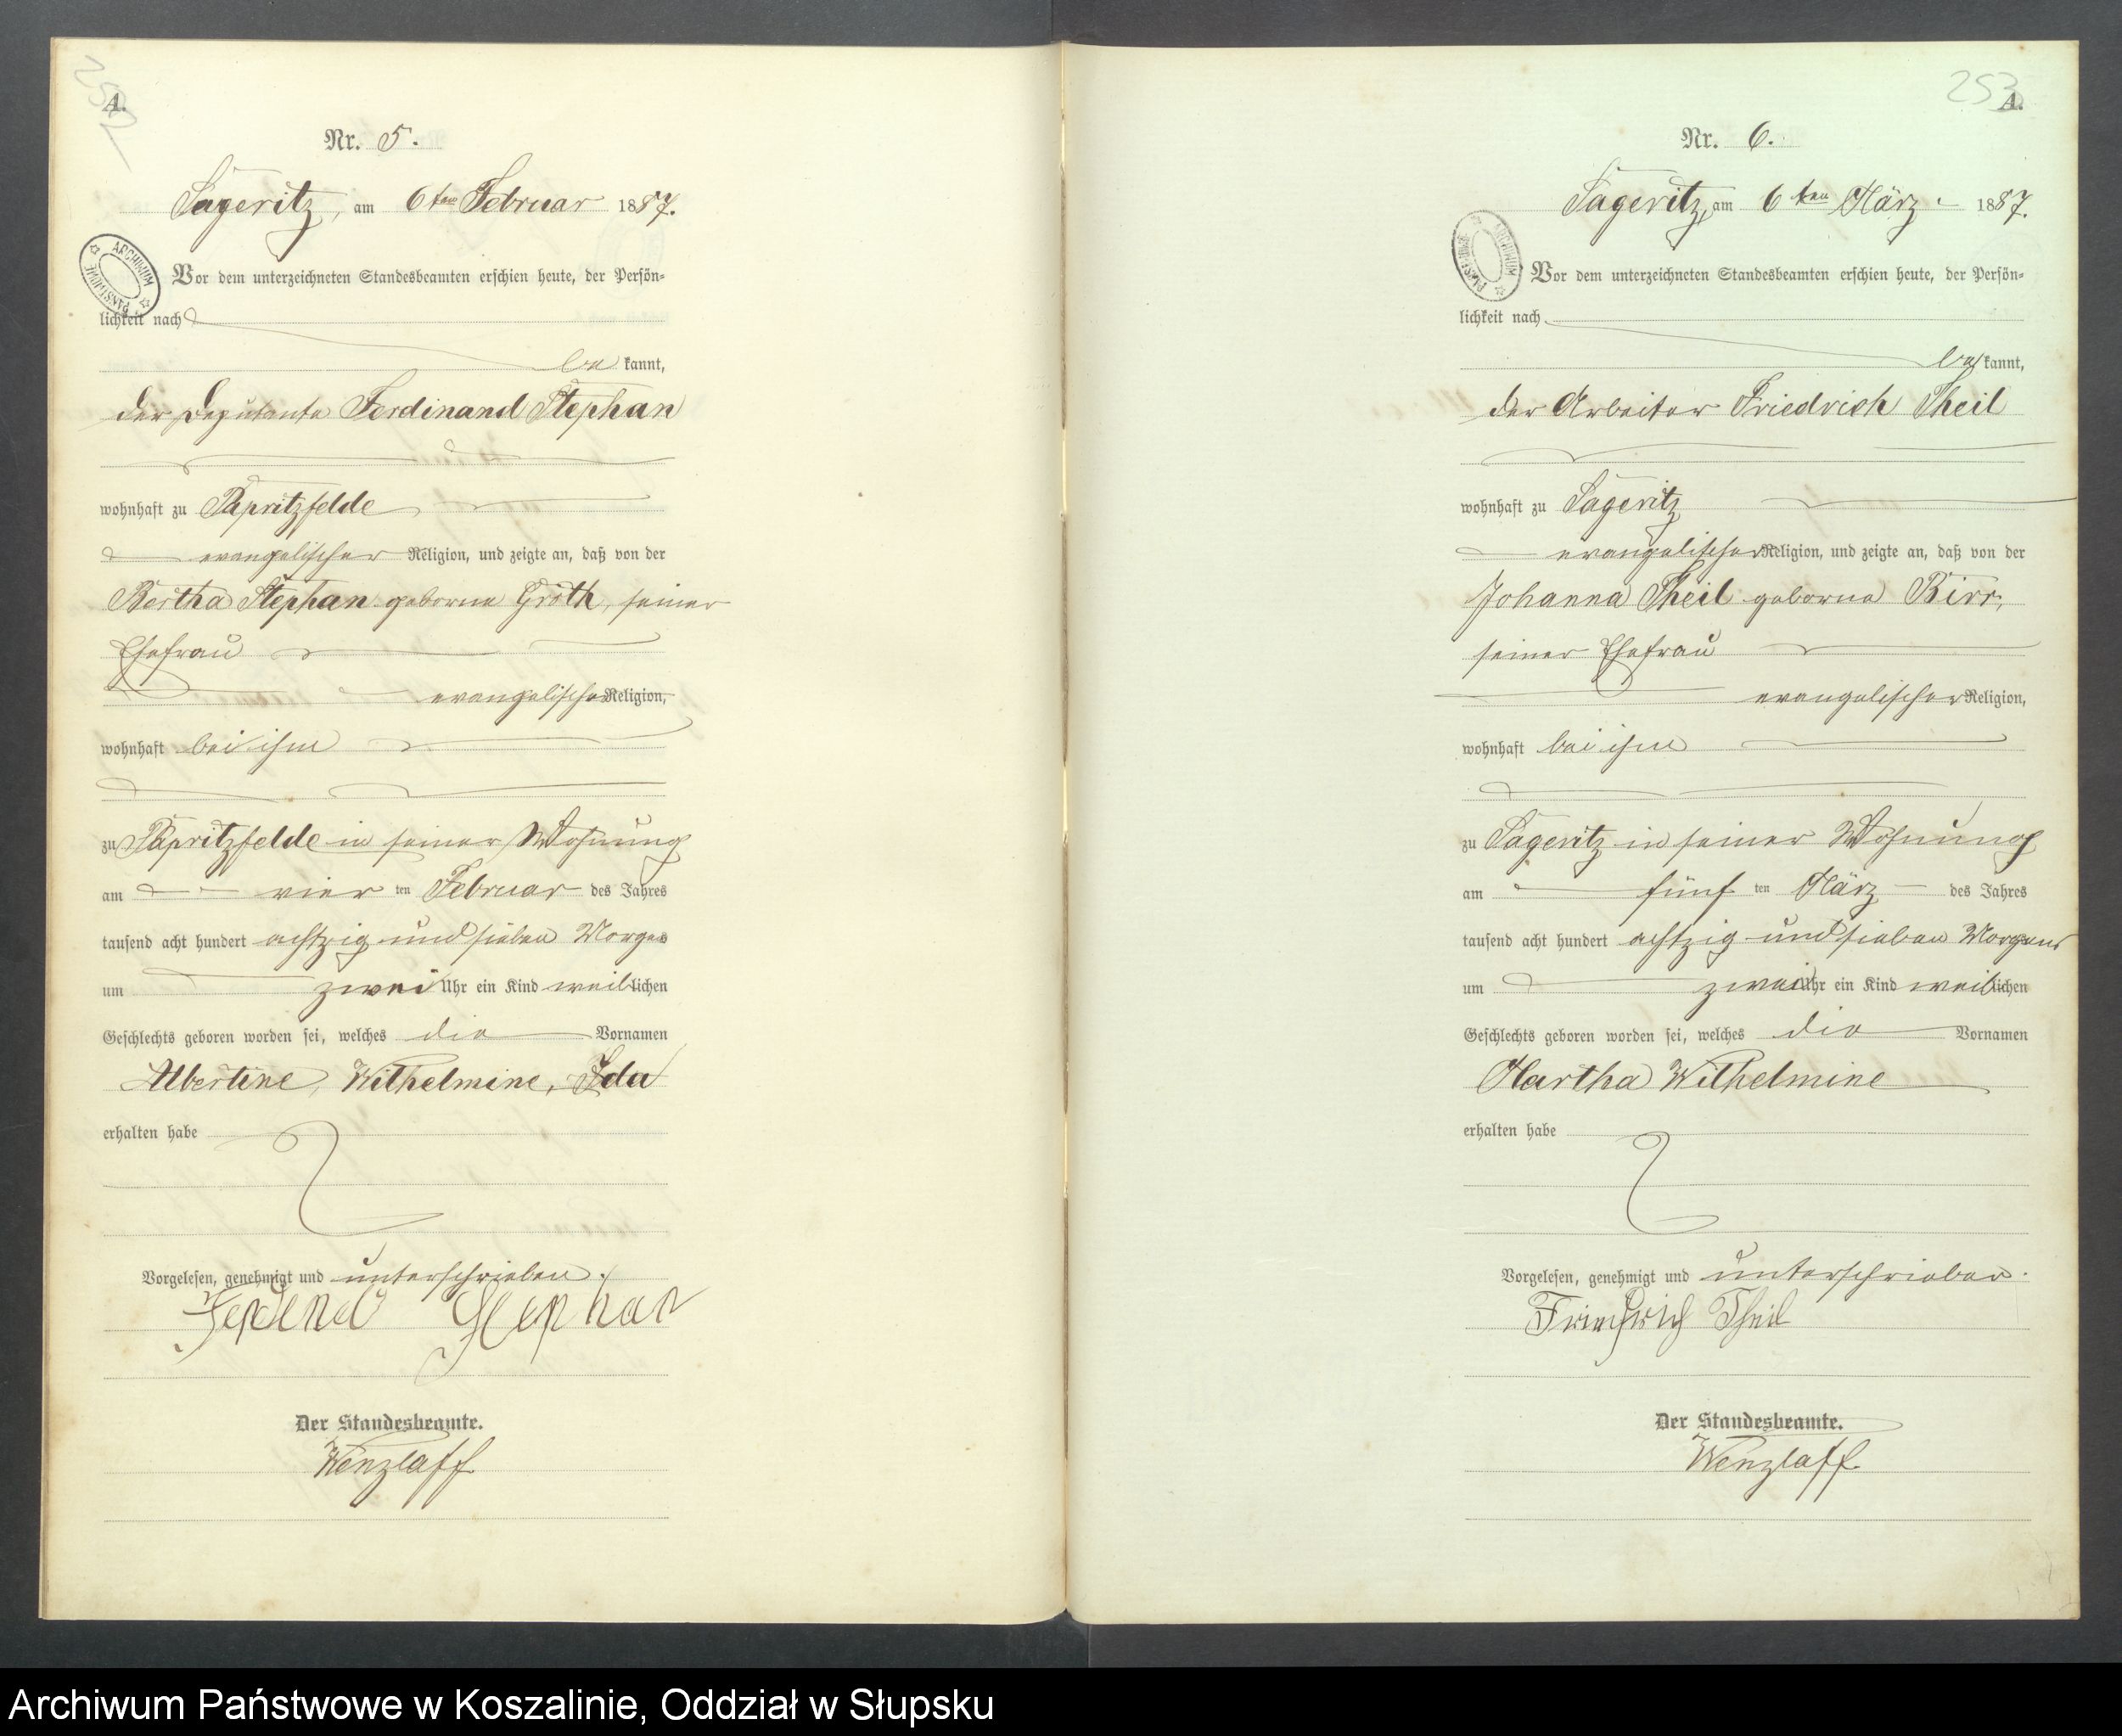 252
A.
Nr. 5.
Sageritz, am 6ten Februar 1887.
ARCHIWUM PAŃSTWOWE
Vor dem unterzeichneten Standesbeamten erschien heute, der Persön-
lichkeit nach
be kannt,
der Deputante Ferdinand Stephan
wohnhaft zu Papritzfelde
evangelischer Religion, und zeigte an, daß von der
Bertha Stephan geborne Groth, seiner
Ehefrau
evangelischer Religion,
wohnhaft bei ihm
zu Papritzfelde in seiner Wohnung
am vier ten Februar des Jahres
tausend acht hundert achtzig und sieben Morgens
um zwei Uhr ein Kind weiblichen
Geschlechts geboren worden sei, welches die Vornamen
Albertine, Wilhelmine, Ida
erhalten habe
Vorgelesen, genehmigt und unterschrieben.
Ferdinad Stephan
Der Standesbeamte.
Wenzlaff
253
A.
Nr. 6.
Sageritz, am 6ten März 1887.
ARCHIWUM PAŃSTWOWE
Vor dem unterzeichneten Standesbeamten erschien heute, der Persön-
lichkeit nach
be kannt,
der Arbeiter Friedrich Theil
wohnhaft zu Sageritz
evangelischer Religion, und zeigte an, daß von der
Johanna Theil geborne Birr,
seiner Ehefrau
evangelischer Religion,
wohnhaft bei ihm
zu Sageritz in seiner Wohnung
am fünf ten März des Jahres
tausend acht hundert achtzig und sieben Morgens
um zwei Uhr ein Kind weiblichen
Geschlechts geboren worden sei, welches die Vornamen
Martha Wilhelmine
erhalten habe
Vorgelesen, genehmigt und unterschrieben.
Friedrich Theil
Der Standesbeamte.
Wenzlaff
Archiwum Państwowe w Koszalinie, Oddział w Słupsku